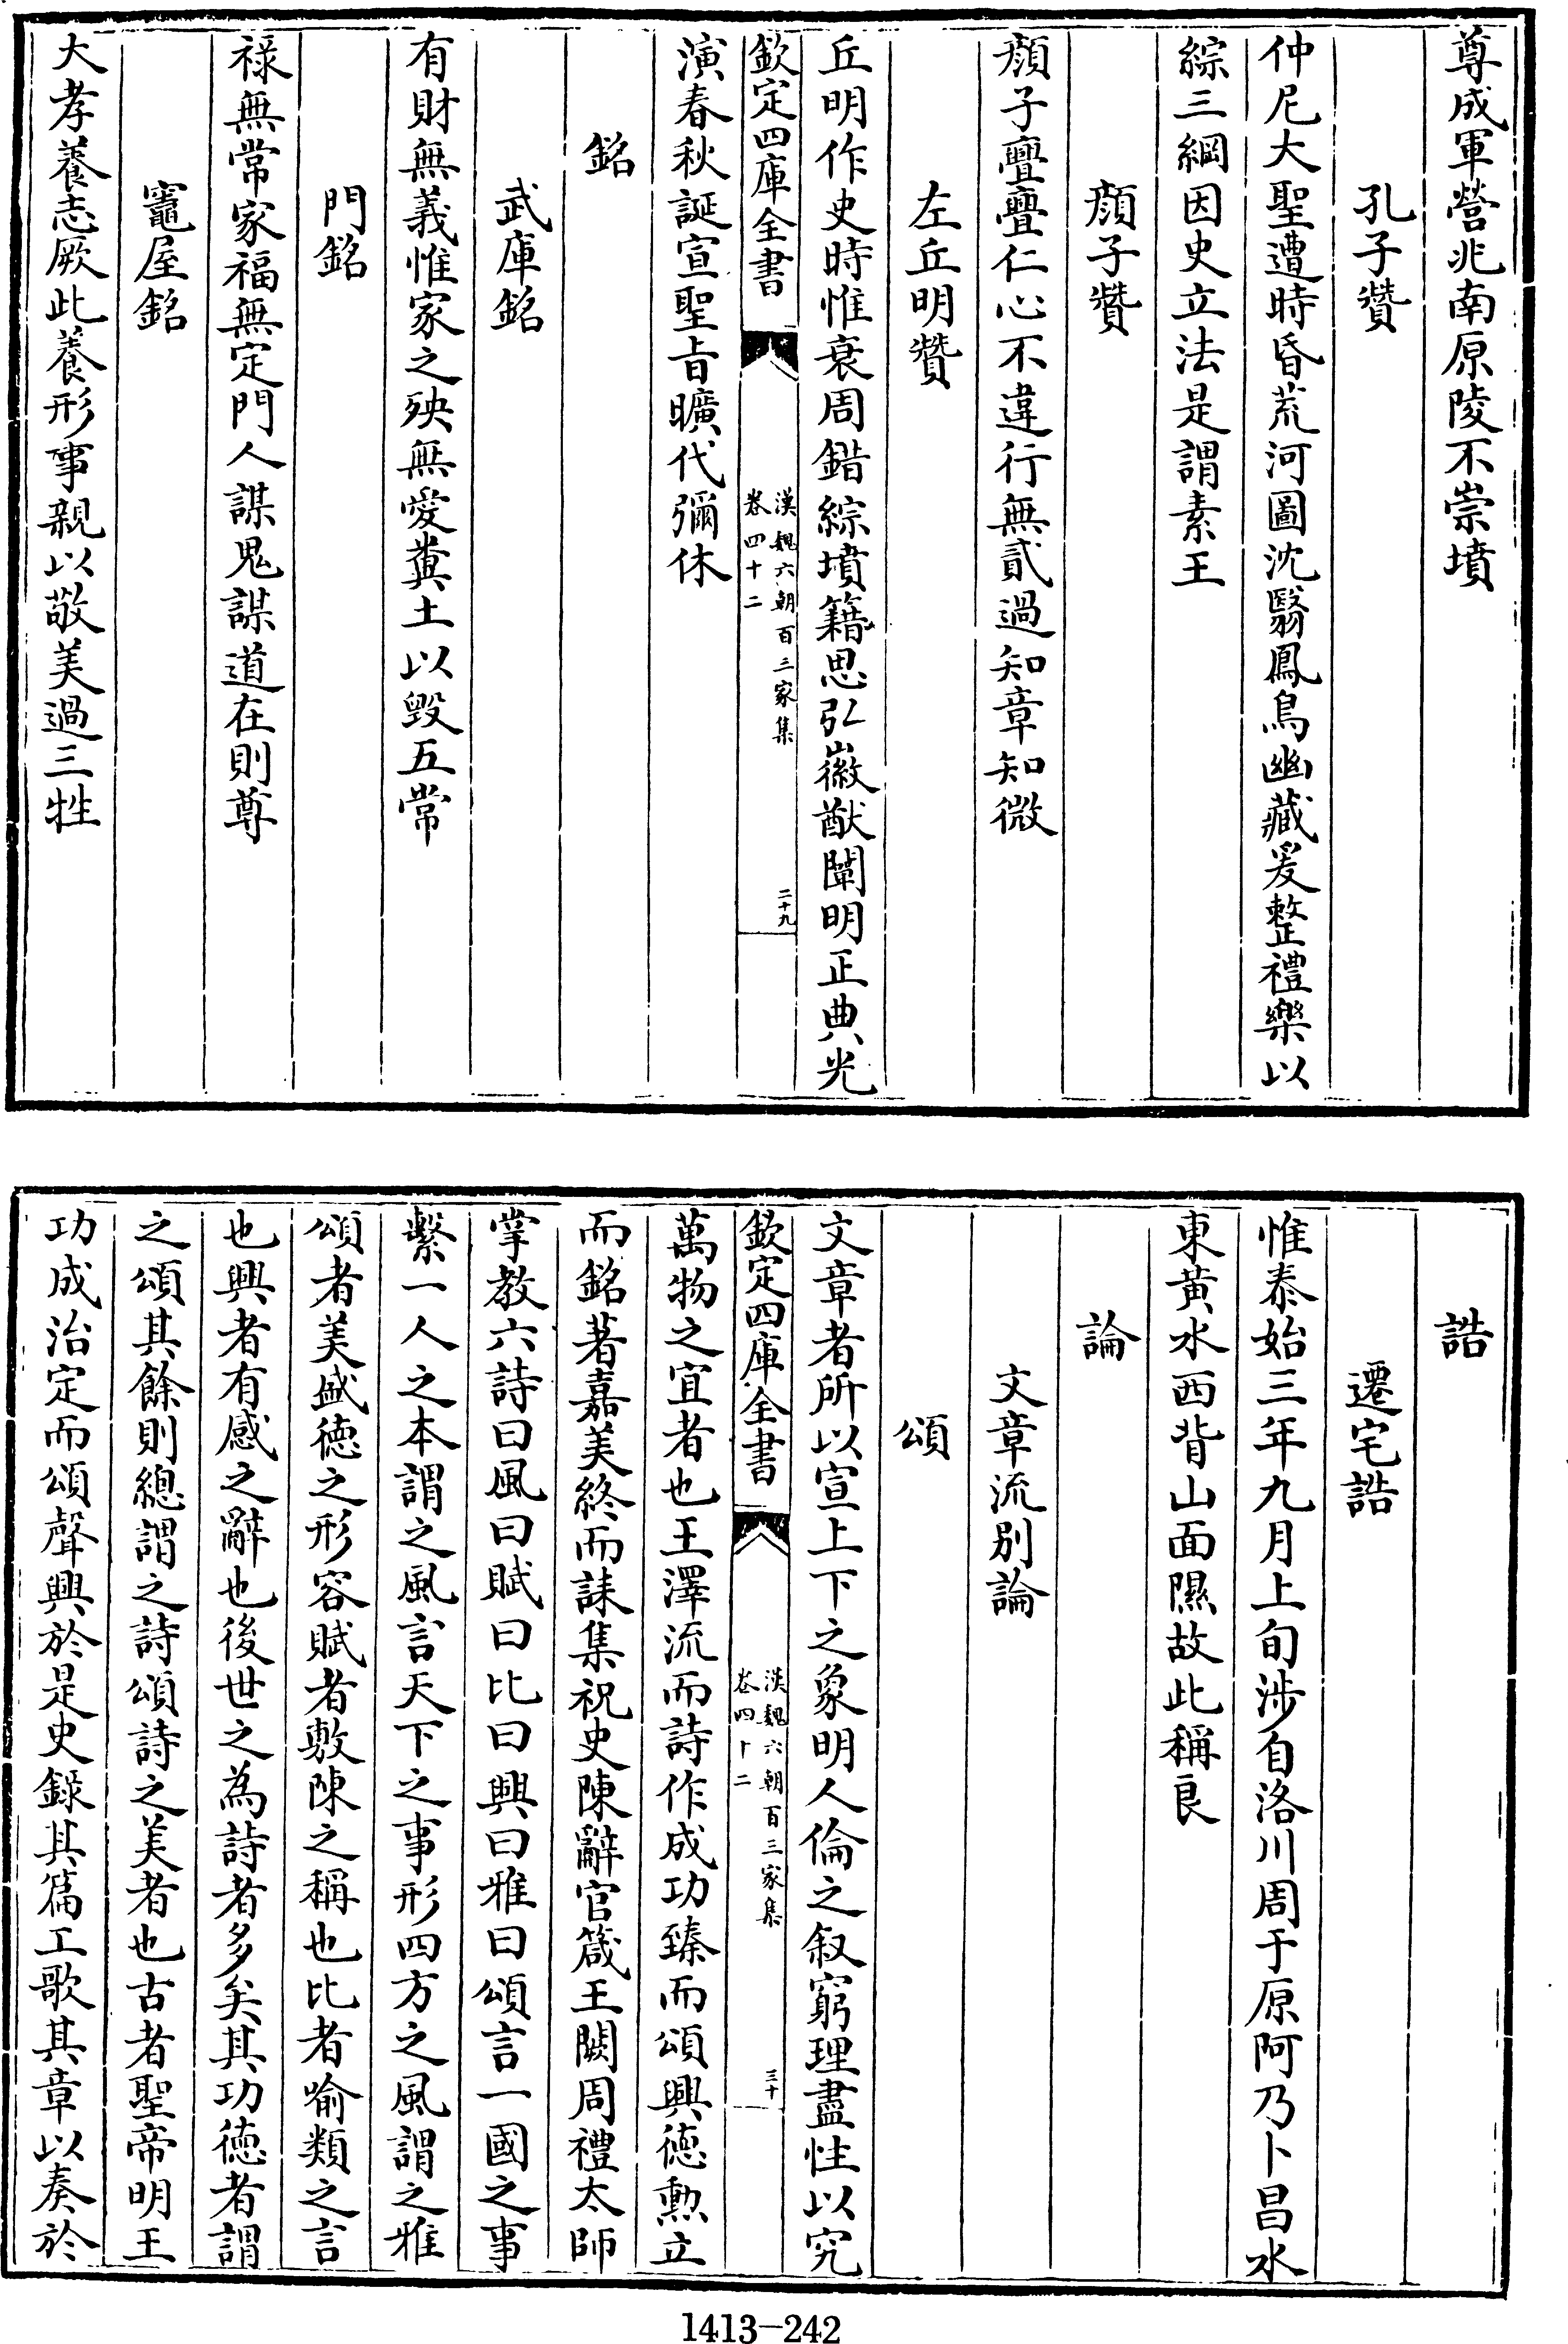 尊成軍營兆南原陵不崇墳
孔子贊
仲尼大聖遭時昏荒河圖沈翳鳳鳥幽藏爰整禮樂以
綜三綱因史立法是謂素王
顏子贊
顏子亹亹仁心不違行無貳過知章知微
左丘明贊
丘明作史時惟衰周錯綜墳籍思弘徽猷闡明正典光
欽定四庫全書
漢魏六朝百三家集
卷四十二
二十九
演春秋誕宣聖旨曠代彌休
銘
武庫銘
有財無義惟家之殃無愛糞土以毀五常
門銘
祿無常家福無定門人謀鬼謀道在則尊
竈屋銘
大孝養志厥此養形事親以敬美過三牲
誥
遷宅誥
惟泰始三年九月上旬涉自洛川周于原阿乃卜昌水
東黃水西背山面隰故此稱良
論
文章流別論
頌
文章者所以宣上下之象明人倫之叙窮理盡性以究
欽定四庫全書
漢魏六朝百三家集
卷四十二
三十
萬物之宜者也王澤流而詩作成功臻而頌興德勲立
而銘著嘉美終而誄集祝史陳辭官箴王闕周禮太師
掌教六詩曰風曰賦曰比曰興曰雅曰頌言一國之事
繫一人之本謂之風言天下之事形四方之風謂之雅
頌者美盛德之形容賦者敷陳之稱也比者喻類之言
也興者有感之辭也後世之為詩者多矣其功德者謂
之頌其餘則總謂之詩頌詩之美者也古者聖帝明王
功成治定而頌聲興於是史錄其篇工歌其章以奏於
1413-242